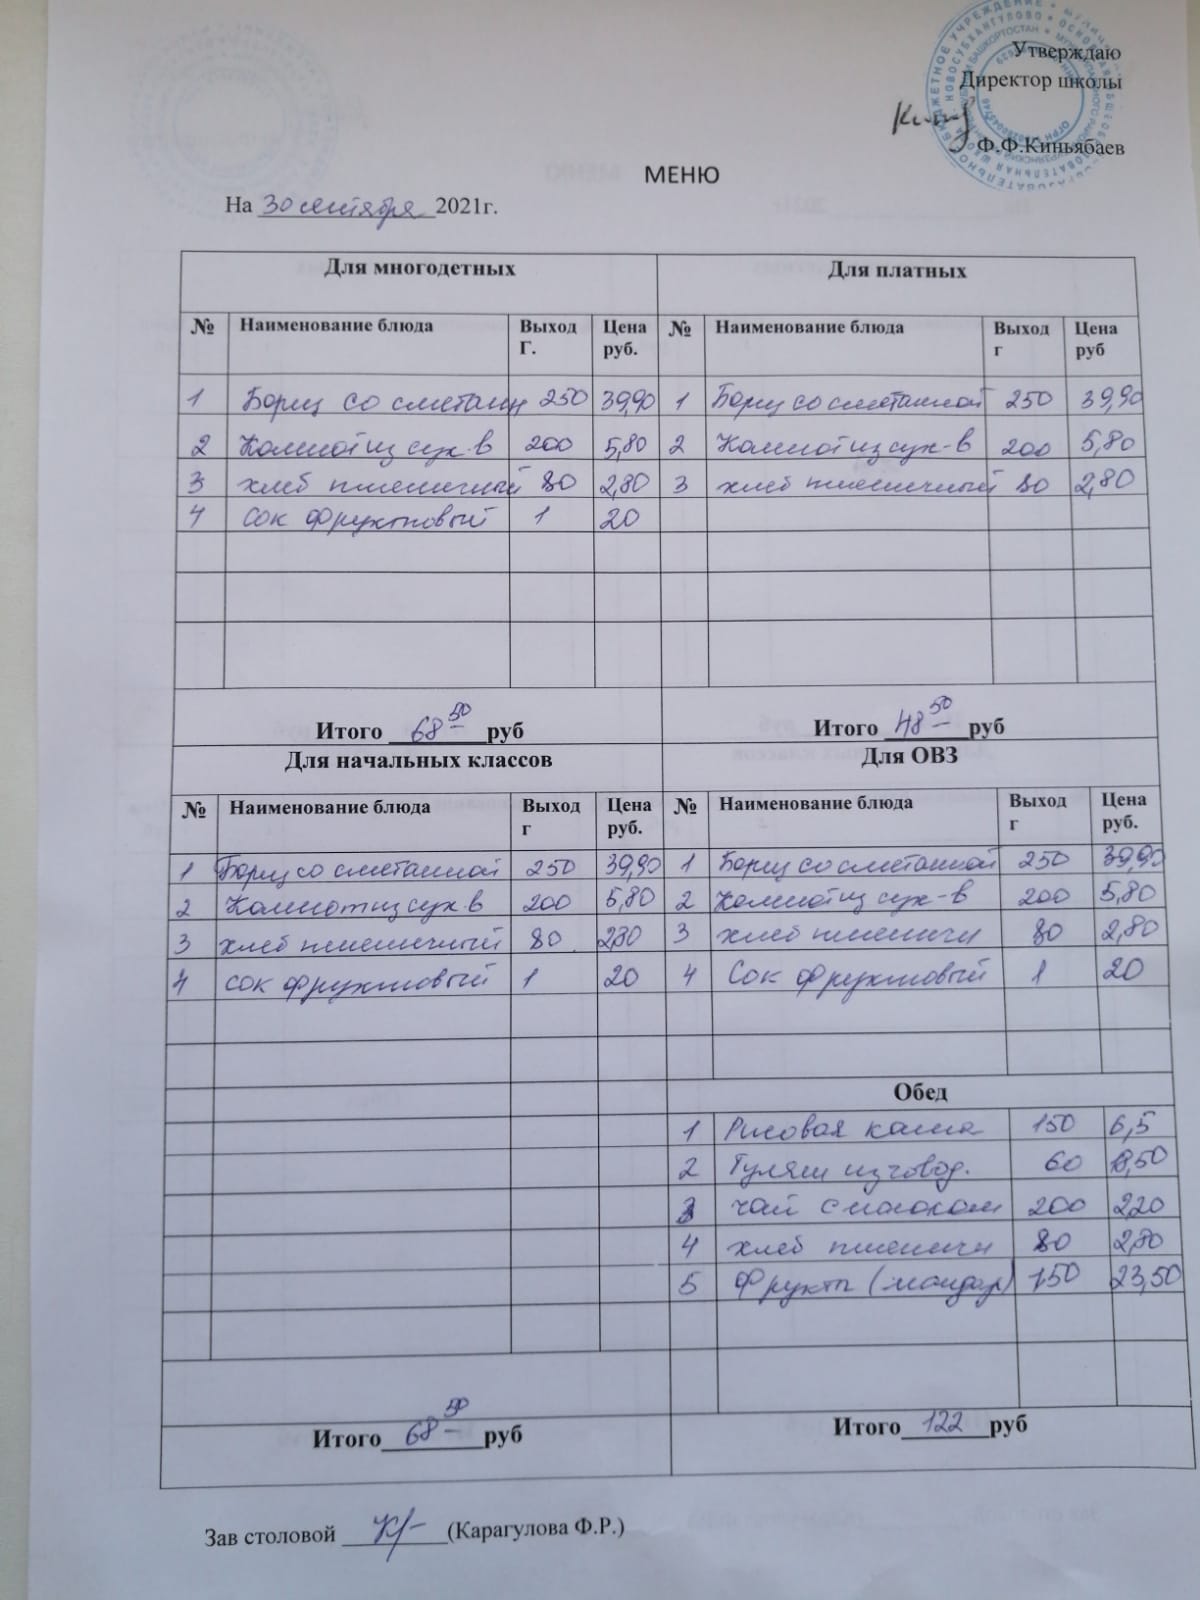 Утверждаю
Директор школы
Ф.Ф.Киньябаев
МЕНЮ
На 30 сентября 2021г.
Для многодетных Для платных
№ Наименование блюда Выход Г. Цена руб. № Наименование блюда Выход г Цена руб
1 Борщ со сметанн 250 39,90 1 Борщ со сметанной 250 39,90
2 Компот из сух-в 200 5,80 2 Компот из сух-в 200 5,80
3 хлеб пшеничный 80 2,80 3 хлеб пшеничный 80 2,80
4 сок фруктовый 1 20
Итого 68 50 руб Итого 48 50 руб
Для начальных классов Для ОВЗ
№ Наименование блюда Выход г Цена руб. № Наименование блюда Выход г Цена руб.
1 Борщ со сметанной 250 39,90 1 Борщ со сметанной 250 39,90
2 Компот из сух-в 200 5,80 2 Компот из сух-в 200 5,80
3 хлеб пшеничный 80 2,80 3 хлеб пшеничн 80 2,80
4 сок фруктовый 1 20 4 Сок фруктовый 1 20
Обед
1 Рисовая каша 150 6,5
2 Гуляш из говяд. 60 18,50
3 чай с молоком 200 2,20
4 хлеб пшеничн 80 2,80
5 Фрукты (мандар) 150 23,50
Итого 68 50 руб Итого 122 руб
Зав столовой (Карагулова Ф.Р.)